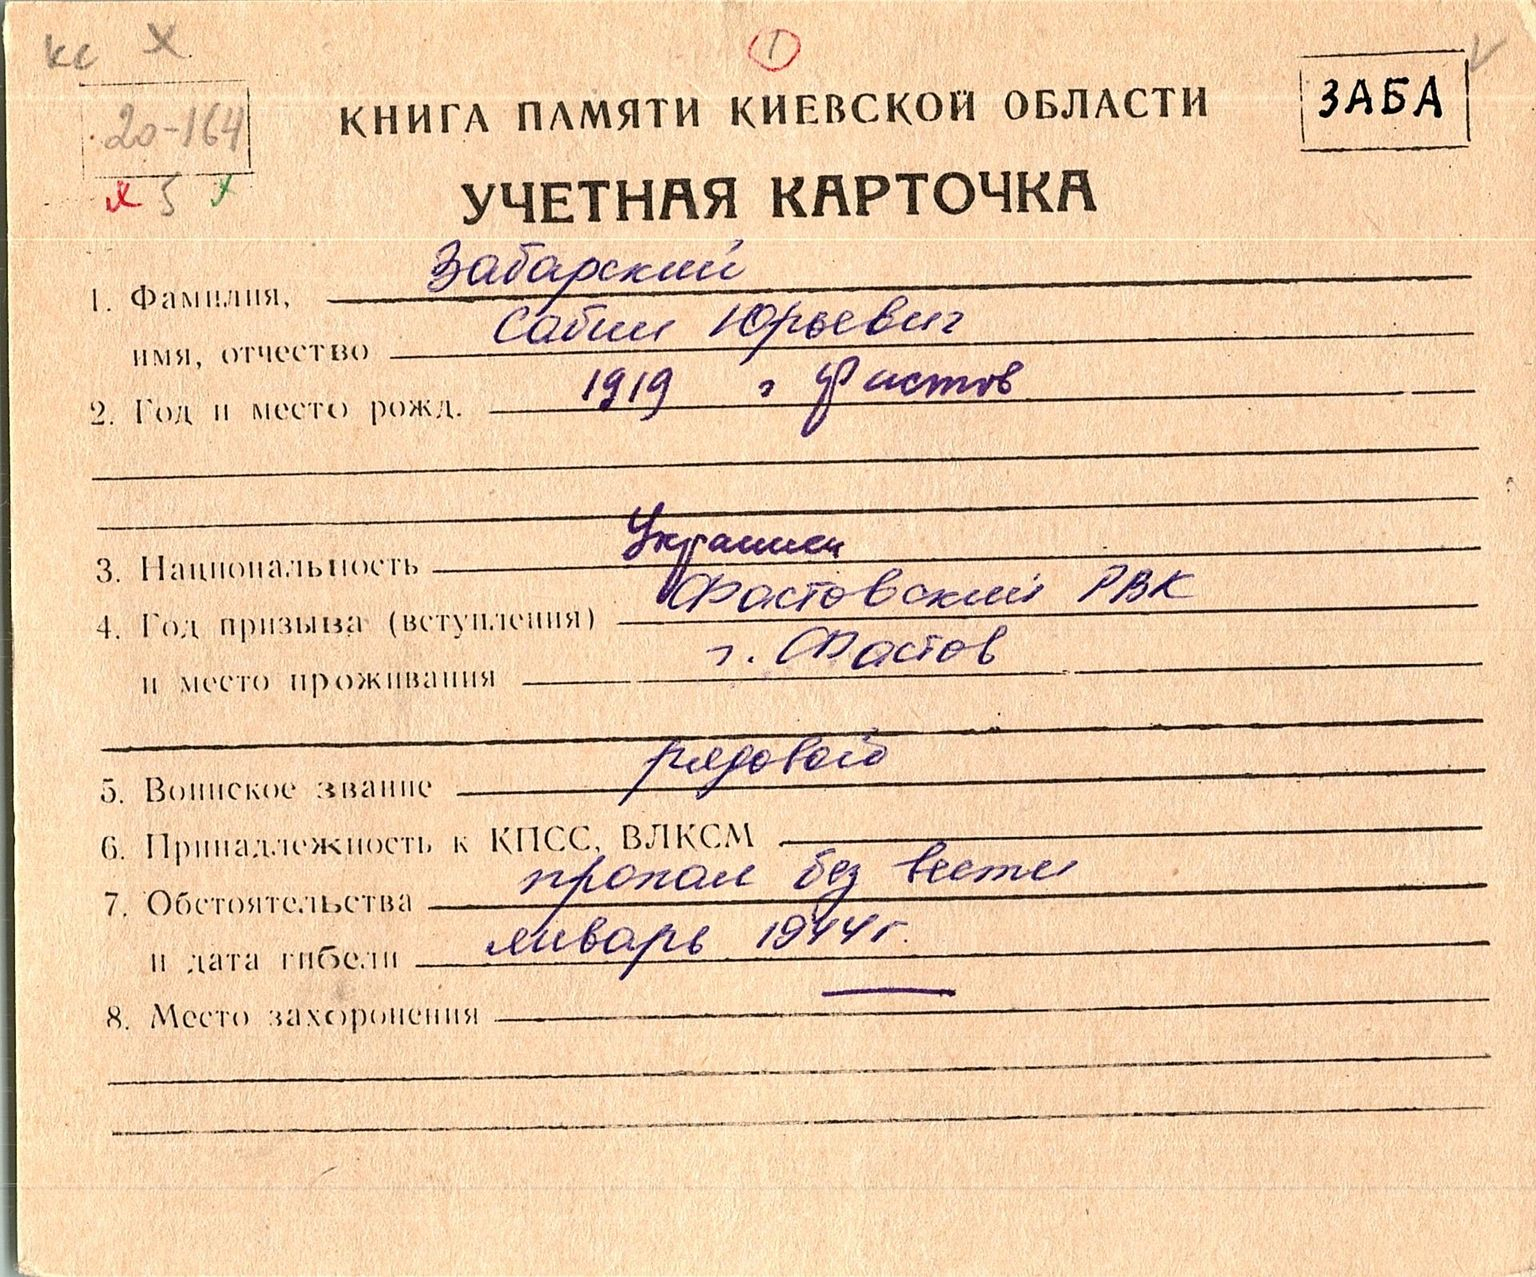 кс X
1
20-164
ЗАБА
х 5 х
КНИГА ПАМЯТИ КИЕВСКОЙ ОБЛАСТИ
УЧЕТНАЯ КАРТОЧКА
1. Фамилия, Забарский
имя, отчество Сабит Юрьевич
2. Год и место рожд. 1919 г Фастов
3. Национальность Украинец
4. Год призыва (вступления) Фастовский РВК
и место проживания г. Фастов
5. Воинское звание рядовой
6. Принадлежность к КПСС, ВЛКСМ
7. Обстоятельства пропал без вести
и дата гибели январь 1944 г.
8. Место захоронения